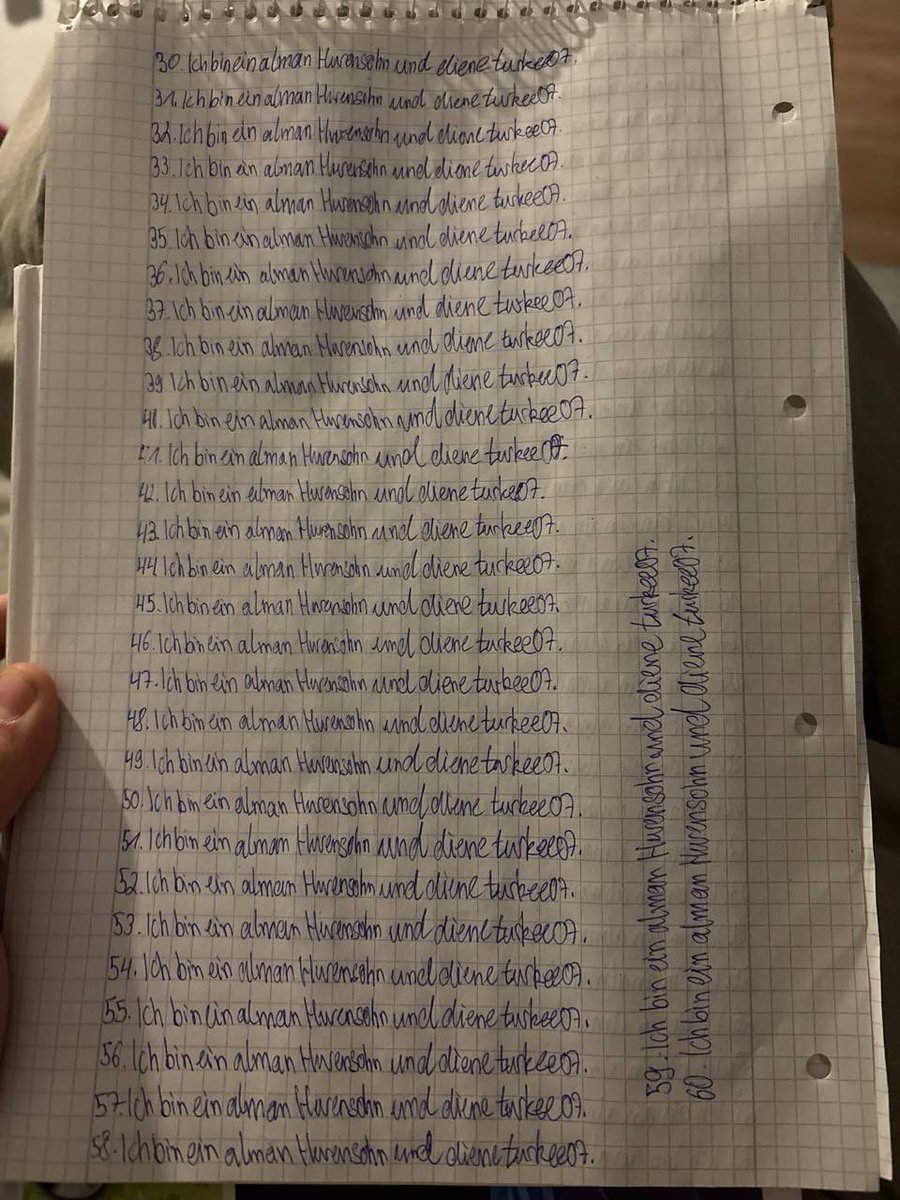 30. Ich bin ein alman Hurensohn und diene turkee07.
31. Ich bin ein alman Hurensohn und diene turkee07.
32. Ich bin ein alman Hurensohn und diene turkee07.
33. Ich bin ein alman Hurensohn und diene turkee07.
34. Ich bin ein alman Hurensohn und diene turkee07.
35. Ich bin ein alman Hurensohn und diene turkee07.
36. Ich bin ein alman Hurensohn und diene turkee07.
37. Ich bin ein alman Hurensohn und diene turkee07.
38. Ich bin ein alman Hurensohn und diene turkee07.
39 Ich bin ein alman Hurensohn und diene turkee07.
40. Ich bin ein alman Hurensohn und diene turkee07.
41. Ich bin ein alman Hurensohn und diene turkee07.
42. Ich bin ein alman Hurensohn und diene turke07.
43. Ich bin ein alman Hurensohn und diene turkee07.
44 Ich bin ein alman Hurensohn und diene turkee07.
45. Ich bin ein alman Hurensohn und diene turkee07.
46. Ich bin ein alman Hurensohn und diene turkee07.
47. Ich bin ein alman Hurensohn und diene turkee07.
48. Ich bin ein alman Hurensohn und diene turkee07.
49. Ich bin ein alman Hurensohn und diene turkee07.
50. Ich bin ein alman Hurensohn und diene turkee07.
51. Ich bin ein alman Hurensohn und diene turkee07.
52. Ich bin ein alman Hurensohn und diene turkee07.
53. Ich bin ein alman Hurensohn und diene turkee07.
54. Ich bin ein alman Hurensohn und diene turkee07.
55. Ich bin ein alman Hurensohn und diene turkee07.
56. Ich bin ein alman Hurensohn und diene turkee07.
57. Ich bin ein alman Hurensohn und diene turkee07.
58. Ich bin ein alman Hurensohn und diene turkee07.
59. Ich bin ein alman Hurensohn und diene turkee07.
60. Ich bin ein alman Hurensohn und diene turkee07.